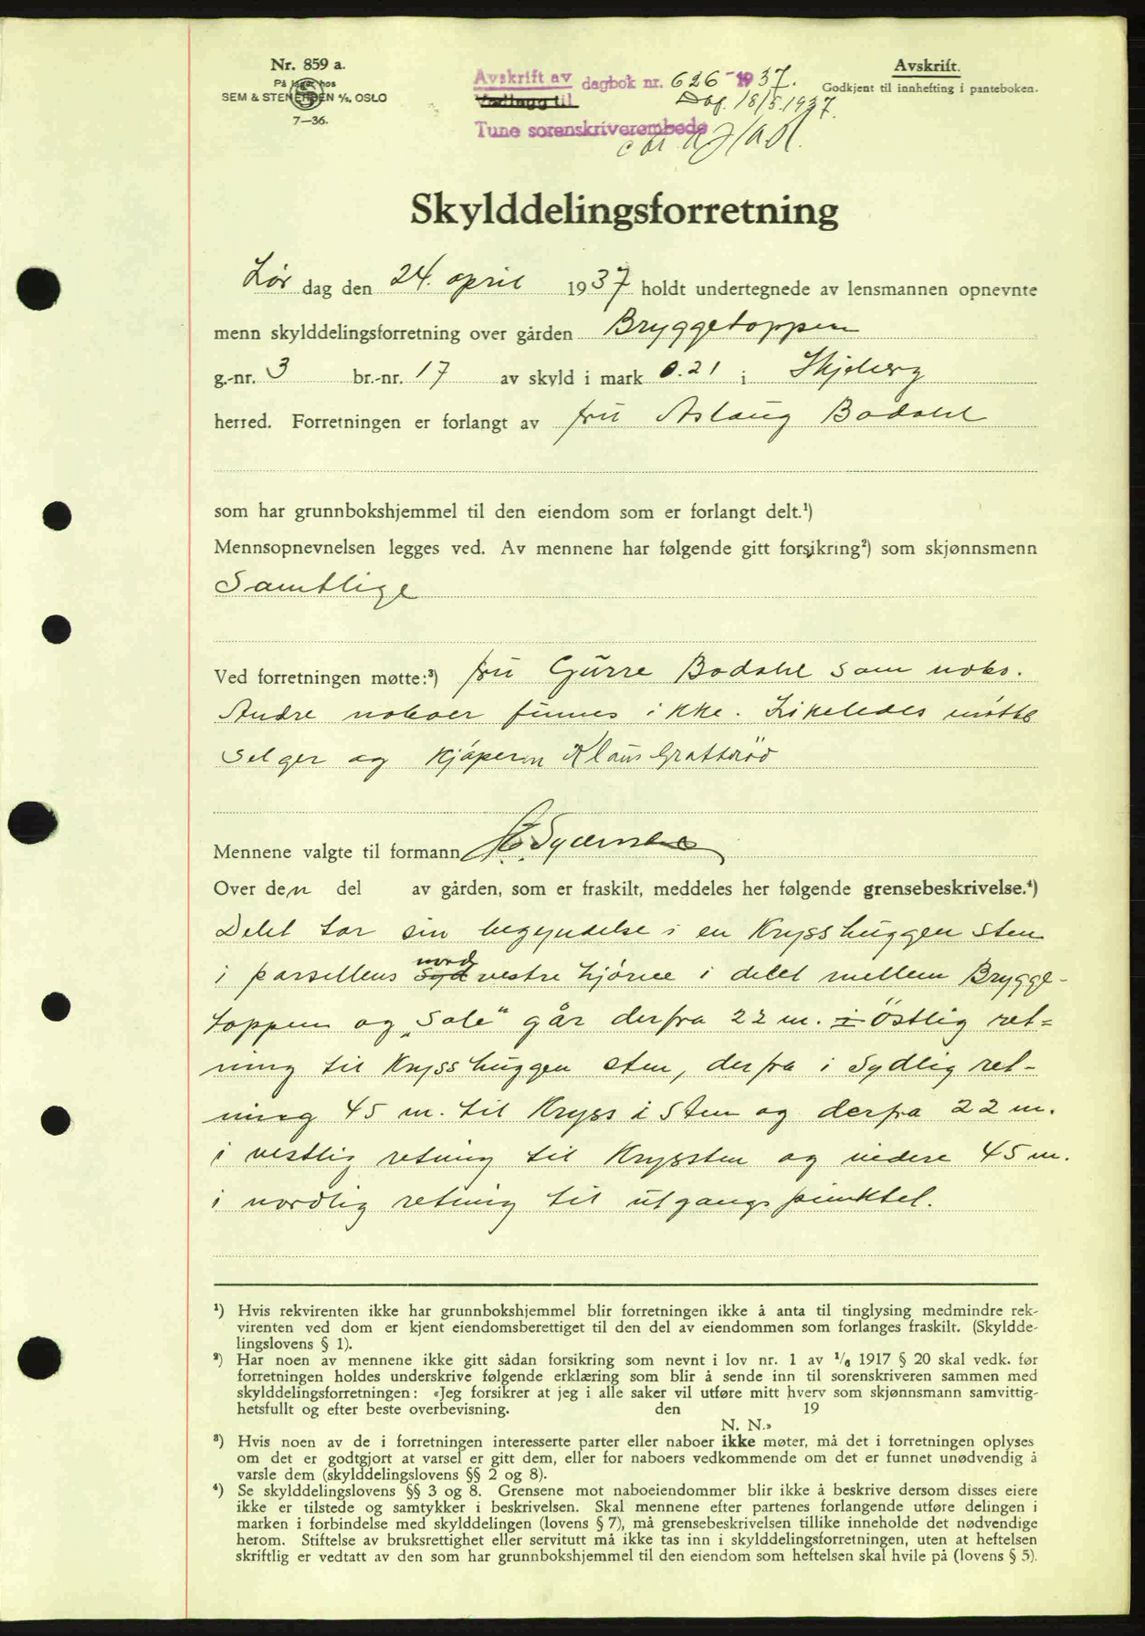 Nr. 859 a.
På lager hos
SEM & STENERSEN A/S, OSLO
7—36.
Avskrift av dagbok nr. 626 - 1937.
Vedlegg til
Dagf. 18/5. 1937.
Tune sorenskriverembede
Avskrift.
Godkjent til innhefting i panteboken.
Skylddelingsforretning
Lør dag den 24. april 1937 holdt undertegnede av lensmannen opnevnte
menn skylddelingsforretning over gården Bryggetoppen
g.-nr. 3 br.-nr. 17 av skyld i mark 0.21 i Skjeberg
herred. Forretningen er forlangt av fru Aslaug Bodahl
som har grunnbokshjemmel til den eiendom som er forlangt delt.¹)
Mennsopnevnelsen legges ved. Av mennene har følgende gitt forsikring²) som skjønnsmenn
Samtlige
Ved forretningen møtte:³) fru Gurre Bodahl som nabo.
Andre naboer finnes ikke. Likeledes møtte
selger og kjøperen Klaus Grattrød
Mennene valgte til formann
Over den del av gården, som er fraskilt, meddeles her følgende grensebeskrivelse.⁴)
Delet tar sin begyndelse i en Krysshuggen sten
i parsellens syd nord vestre hjørne i delet mellem Brygge-
toppen og „Sole" går derfra 22 m. i östlig ret=
ning til Krysshuggen sten, derfra i sydlig ret-
ning 45 m. til Kryss i sten og derfra 22 m.
i vestlig retning til Kryssten og videre 45 m.
i nordlig retning til utgangspunktet.
¹) Hvis rekvirenten ikke har grunnbokshjemmel blir forretningen ikke å anta til tinglysing medmindre rek-
virenten ved dom er kjent eiendomsberettiget til den del av eiendommen som forlanges fraskilt. (Skyldde-
lingslovens § 1).
²) Har noen av mennene ikke gitt sådan forsikring som nevnt i lov nr. 1 av ¹/₆ 1917 § 20 skal vedk. før
forretningen holdes underskrive følgende erklæring som blir å sende inn til sorenskriveren sammen med
skylddelingsforretningen: «Jeg forsikrer at jeg i alle saker vil utføre mitt hverv som skjønnsmann samvittig-
hetsfullt og efter beste overbevisning. den 19
N. N.»
³) Hvis noen av de i forretningen interesserte parter eller naboer ikke møter, må det i forretningen oplyses
om det er godtgjort at varsel er gitt dem, eller for naboers vedkommende om det er funnet unødvendig å
varsle dem (skylddelingslovens §§ 2 og 8).
⁴) Se skylddelingslovens §§ 3 og 8. Grensene mot naboeiendommer blir ikke å beskrive dersom disses eiere
ikke er tilstede og samtykker i beskrivelsen. Skal mennene efter partenes forlangende utføre delingen i
marken i forbindelse med skylddelingen (lovens § 7), må grensebeskrivelsen tillike inneholde det nødvendige
herom. Stiftelse av bruksrettighet eller servitutt må ikke tas inn i skylddelingsforretningen, uten at heftelsen
skriftlig er vedtatt av den som har grunnbokshjemmel til den eiendom som heftelsen skal hvile på (lovens § 5).